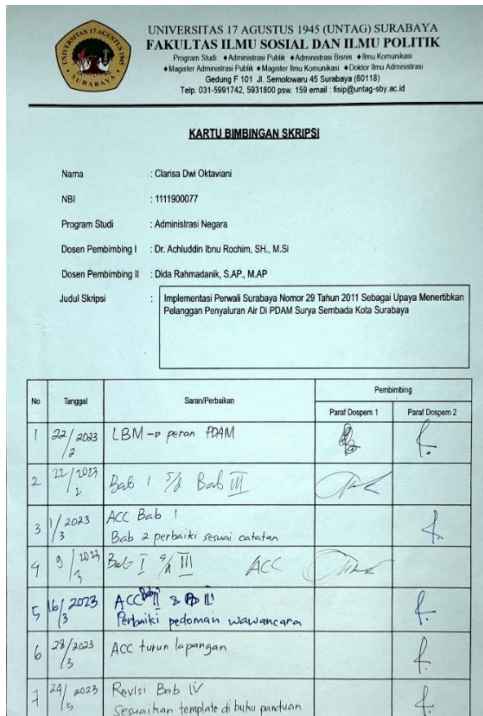 UNIVERSITAS 17 AGUSTUS 1945 (UNTAG) SURABAYA
FAKULTAS ILMU SOSIAL DAN ILMU POLITIK
Program Studi : ♦Administrasi Publik ♦Administrasi Bisnis ♦Ilmu Komunikasi
♦Magister Administrasi Publik ♦Magister Ilmu Komunikasi ♦Doktor Ilmu Administrasi
Gedung F 101 Jl. Semolowaru 45 Surabaya (60118)
Telp. 031-5991742, 5931800 psw. 159 email : fisip@untag-sby.ac.id
KARTU BIMBINGAN SKRIPSI
Nama : Clarisa Dwi Oktaviani
NBI : 1111900077
Program Studi : Administrasi Negara
Dosen Pembimbing I : Dr. Achluddin Ibnu Rochim, SH., M.Si
Dosen Pembimbing II : Dida Rahmadanik, S.AP., M.AP
Judul Skripsi : Implementasi Perwali Surabaya Nomor 29 Tahun 2011 Sebagai Upaya Menertibkan
Pelanggan Penyaluran Air Di PDAM Surya Sembada Kota Surabaya
No Tanggal Saran/Perbaikan Pembimbing
Paraf Dospem 1 Paraf Dospem 2
1 22/2 2023 LBM → peran PDAM
2 22/2 2023 Bab I s/d Bab III
3 1/3 2023 ACC Bab 1
Bab 2 perbaiki sesuai catatan
4 9/3 2023 Bab I s/d III ACC
5 16/3 2023 ACC Bab II & III
Perbaiki pedoman wawancara
6 28/3 2023 ACC turun lapangan
7 24/5 2023 Revisi Bab IV
Sesuaikan template di buku panduan